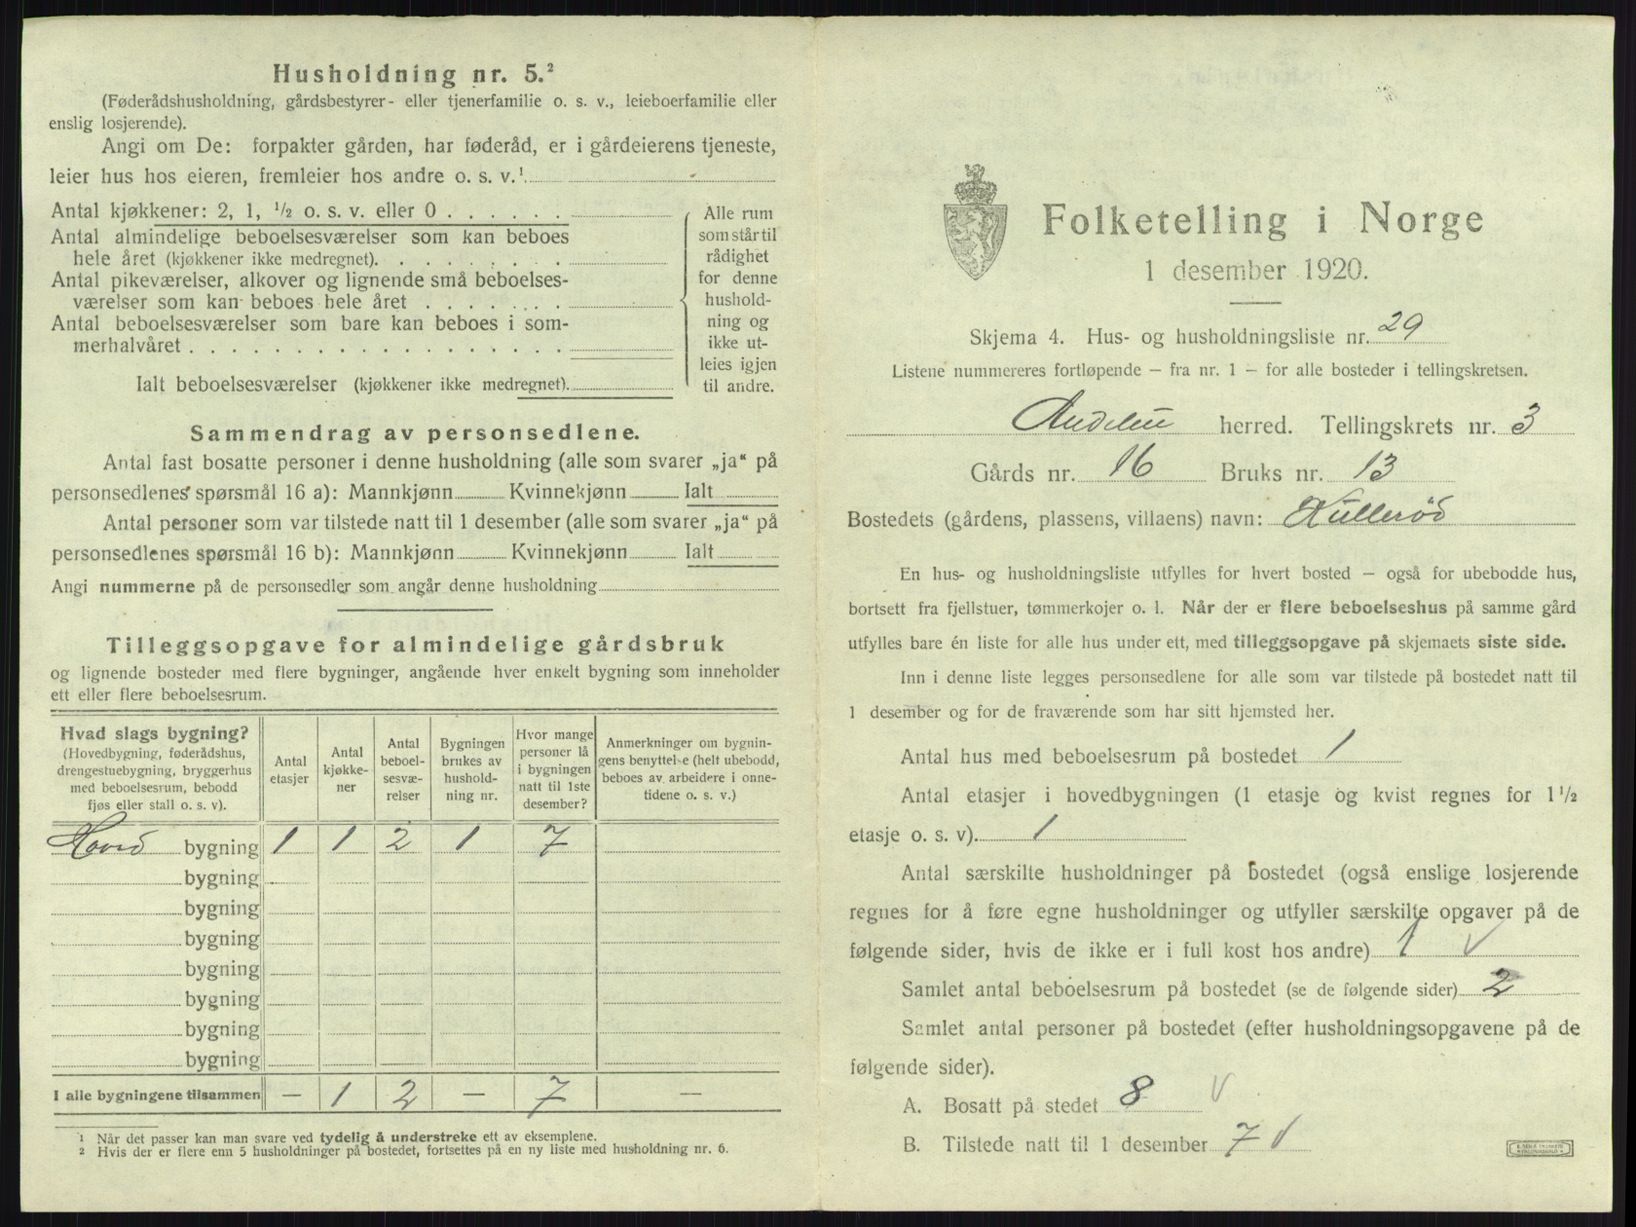 Husholdning nr. 5.²
(Føderådshusholdning, gårdsbestyrer- eller tjenerfamilie o. s. v., leieboerfamilie eller
enslig losjerende).
Angi om De: forpakter gården, har føderåd, er i gårdeierens tjeneste,
leier hus hos eieren, fremleier hos andre o. s. v.¹
Antal kjøkkener: 2, 1, ½ o. s. v. eller 0
Antal almindelige beboelsesværelser som kan beboes
hele året (kjøkkener ikke medregnet).
Antal pikeværelser, alkover og lignende små beboelses-
værelser som kan beboes hele året
Antal beboelsesværelser som bare kan beboes i som-
merhalvåret
Ialt beboelsesværelser (kjøkkener ikke medregnet).
Alle rum
som står til
rådighet
for denne
hushold-
ning og
ikke ut-
leies igjen
til andre.
Sammendrag av personsedlene.
Antal fast bosatte personer i denne husholdning (alle som svarer „ja“ på
personsedlenes spørsmål 16 a): Mannkjønn Kvinnekjønn Ialt
Antal personer som var tilstede natt til 1 desember (alle som svarer „ja“ på
personsedlenes spørsmål 16 b): Mannkjønn Kvinnekjønn Ialt
Angi nummerne på de personsedler som angår denne husholdning
Tilleggsopgave for almindelige gårdsbruk
og lignende bosteder med flere bygninger, angående hver enkelt bygning som inneholder
ett eller flere beboelsesrum.
Hvad slags bygning?
(Hovedbygning, føderådshus,
drengestuebygning, bryggerhus
med beboelsesrum, bebodd
fjøs eller stall o. s. v).
Antal
etasjer
Antal
kjøkke-
ner
Antal
beboel-
sesvæ-
relser
Bygningen
brukes av
hushold-
ning nr.
Hvor mange
personer lå
i bygningen
natt til 1ste
desember?
Anmerkninger om bygnin-
gens benyttelse (helt ubebodd,
beboes av arbeidere i onne-
tidene o. s. v.)
Hoved bygning 1 1 2 1 7
bygning
bygning
bygning
bygning
bygning
bygning
bygning
I alle bygningene tilsammen – 1 2 – 7 –
¹ Når det passer kan man svare ved tydelig å understreke ett av eksemplene.
² Hvis der er flere enn 5 husholdninger på bostedet, fortsettes på en ny liste med husholdning nr. 6.
Folketelling i Norge
1 desember 1920.
Skjema 4. Hus- og husholdningsliste nr. 29
Listene nummereres fortløpende – fra nr. 1 – for alle bosteder i tellingskretsen.
herred. Tellingskrets nr. 3
Gårds nr. 16 Bruks nr. 13
Bostedets (gårdens, plassens, villaens) navn: Kullerød
En hus- og husholdningsliste utfylles for hvert bosted – også for ubebodde hus,
bortsett fra fjellstuer, tømmerkojer o. l. Når der er flere beboelseshus på samme gård
utfylles bare én liste for alle hus under ett, med tilleggsopgave på skjemaets siste side.
Inn i denne liste legges personsedlene for alle som var tilstede på bostedet natt til
1 desember og for de fraværende som har sitt hjemsted her.
Antal hus med beboelsesrum på bostedet 1
Antal etasjer i hovedbygningen (1 etasje og kvist regnes for 1½
etasje o. s. v). 1
Antal særskilte husholdninger på bostedet (også enslige losjerende
regnes for å føre egne husholdninger og utfyller særskilte opgaver på de
følgende sider, hvis de ikke er i full kost hos andre) 1 √
Samlet antal beboelsesrum på bostedet (se de følgende sider) 2
Samlet antal personer på bostedet (efter husholdningsopgavene på de
følgende sider).
A. Bosatt på stedet 8 √
B. Tilstede natt til 1 desember 7 √